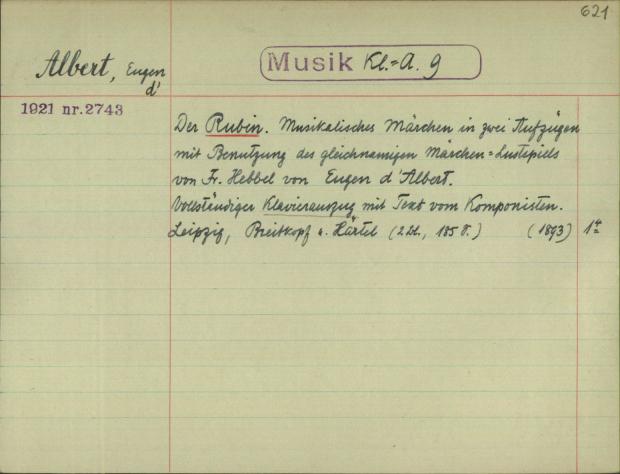 621
Albert, Eugen
d'
Musik Kl.=A. 9
1921 nr.2743
Der Rubin. Musikalisches Märchen in zwei Aufzügen
mit Benutzung des gleichnamigen Märchen=Lustspiels
von Fr. Hebbel von Eugen d'Albert.
Vollständiger Klavierauszug mit Text vom Komponisten.
Leipzig, Breitkopf u. Härtel (2 Bl., 185 S.) (1893) 4°